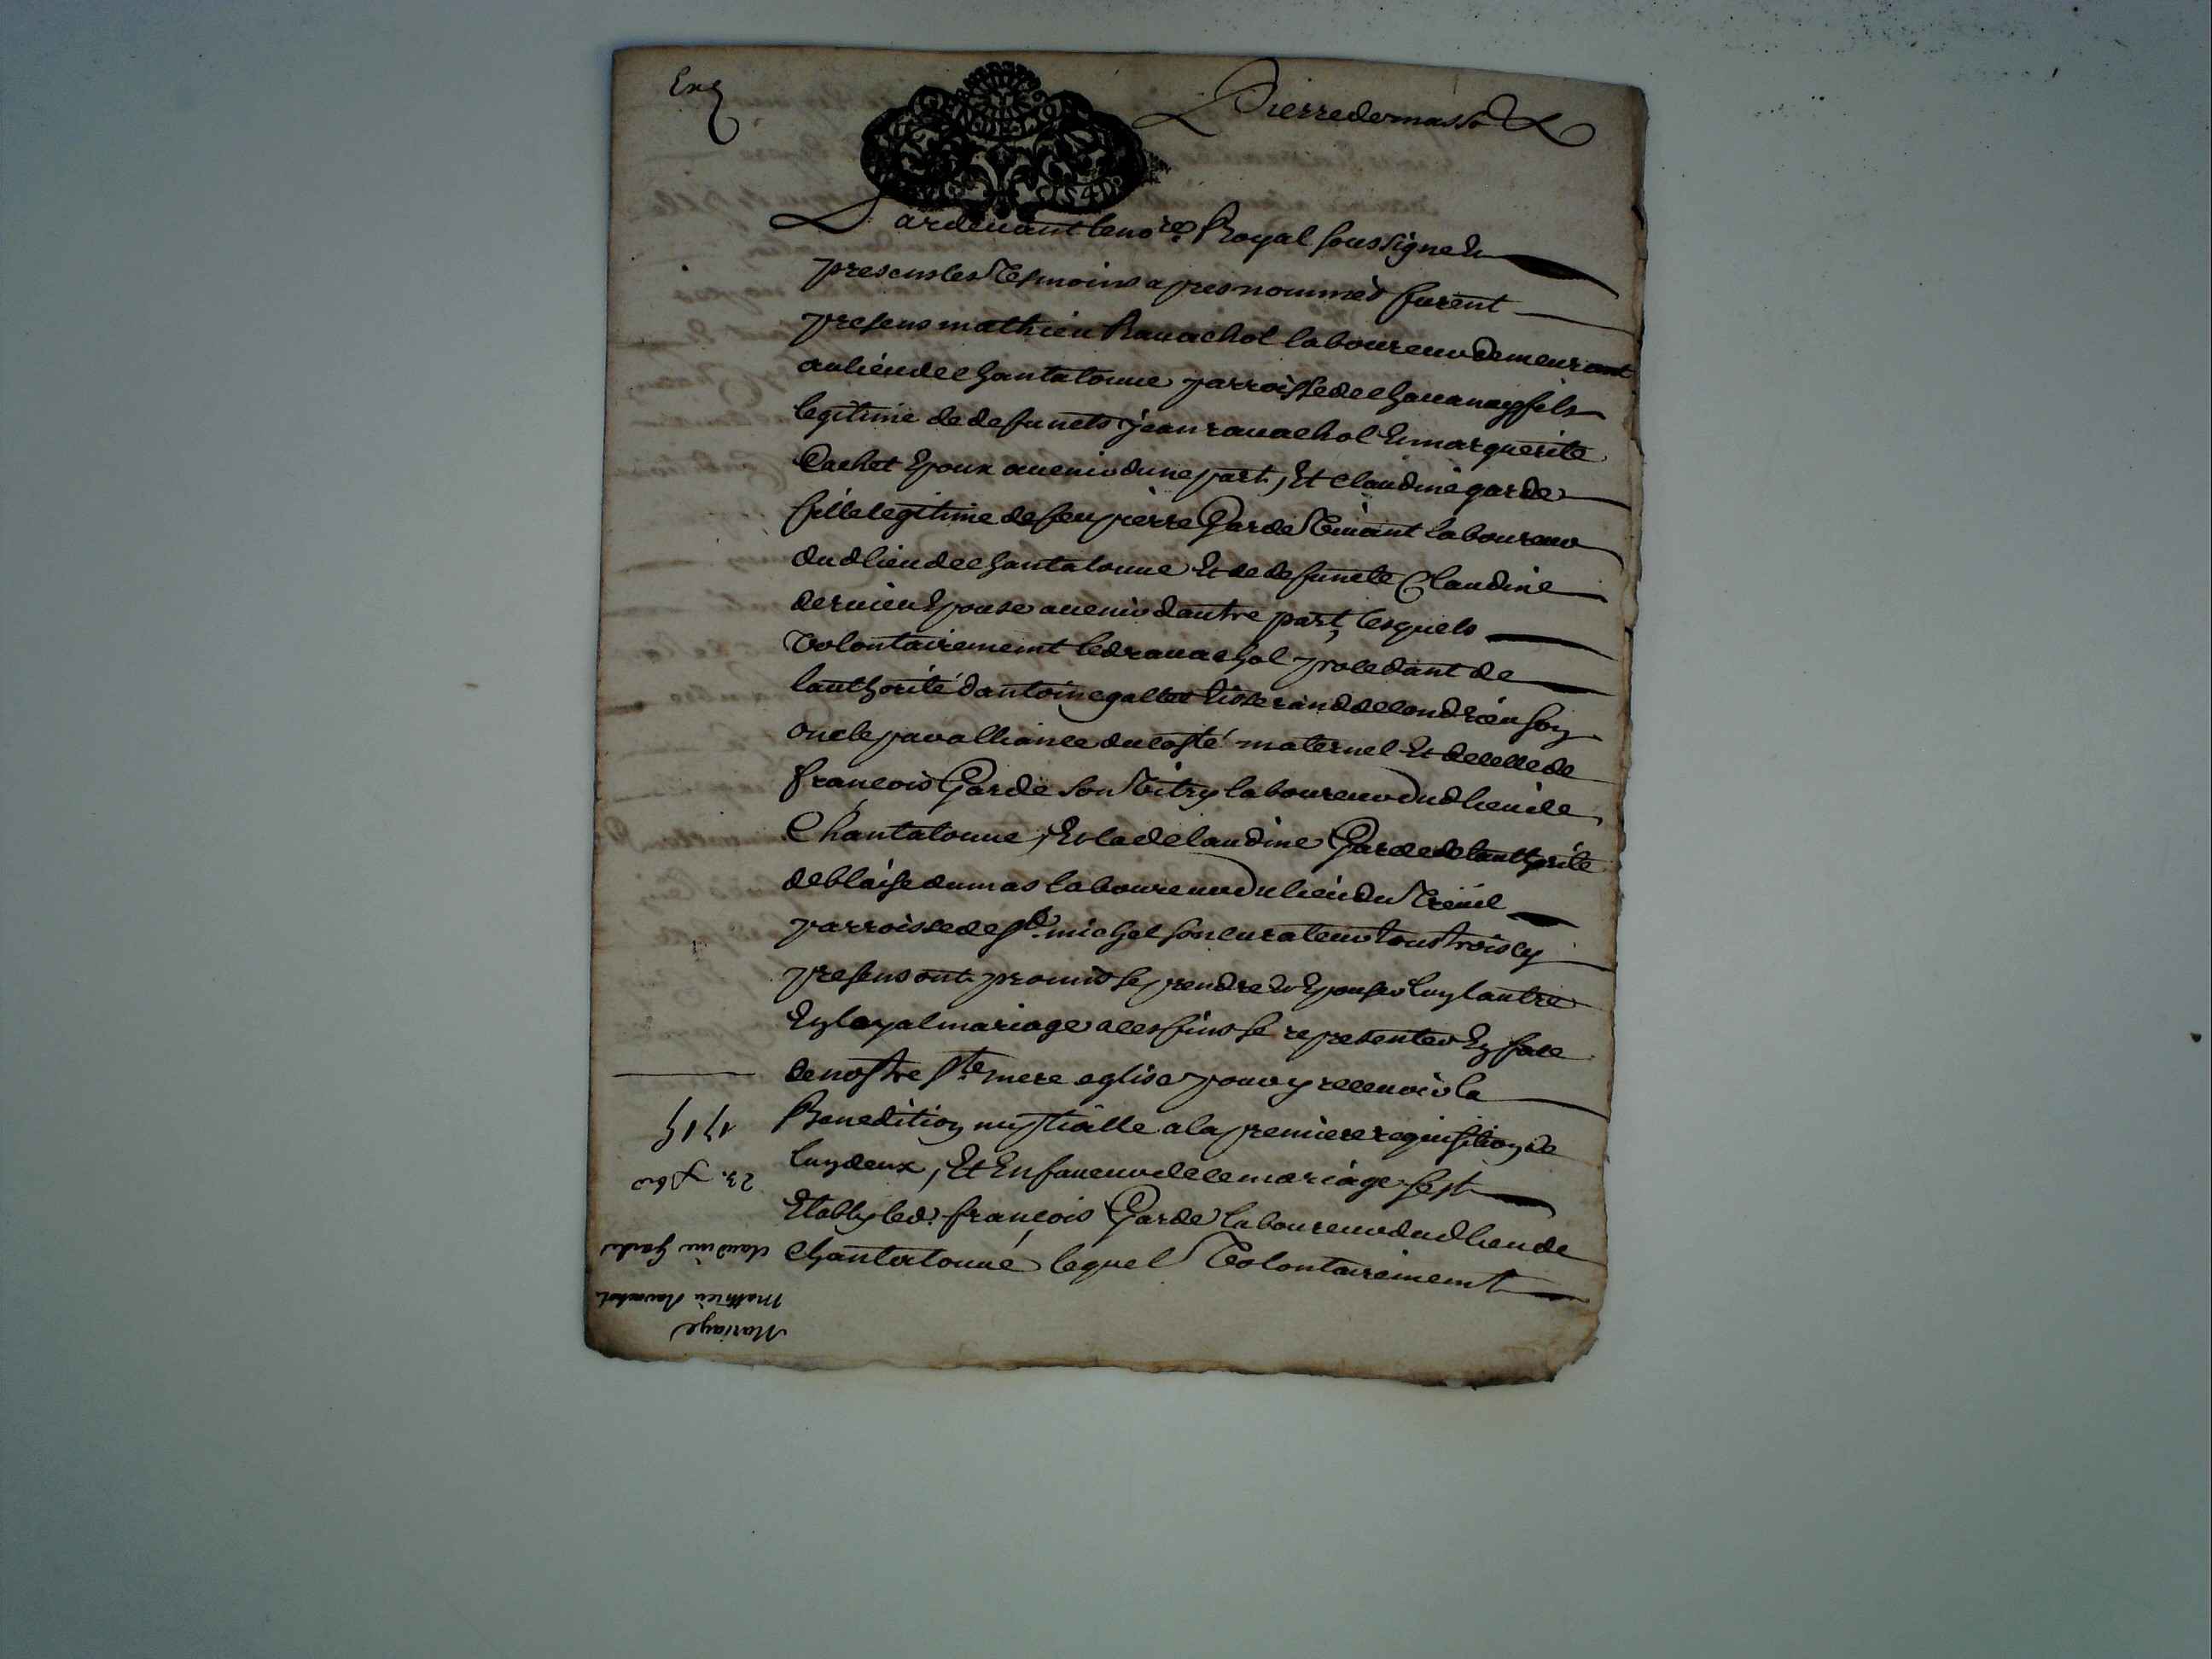 Exg
Pierre demasso
Pardeuant le no.re Royal soussigne &
presens les tesmoins apres nommés furent
presens mathieu Rauachol laboureur demeurant
au lieu de Chantalouue parroisse de chauanay fils
legitime de defuncts jean rauachol & marguerite
Cachet Epoux auenir dune part, Et Claudine garde
fille legitime de feu pierre Garde viuant laboureur
dud lieu de Chantalouue Et de defuncte Claudine
dernieu Epouse auenir dautre part, lesquels
volontairement led rauachol procedant de
lauthorité dantoine gallet tisserand de Condrieu soy
oncle par alliance du costé maternel Et de celle de
francois Garde son laboureur dud lieu de
Chantalouue, Et lad Claudine Garde de lauthorité
de blaise dumas laboureur du lieu du Treüil
parroisse de st. michel son curateur tous trois cy
presens ont promis se prendre & Epouser luy lautre
Ey loyal mariage a ces fins se representer Ey face
de nostre ste. mere eglise pour y receuoir la
Benedition nuptialle a la premiere requisitioy de
luy deux, Et En faueur de ce mariage sest
Etably led. françois Garde laboureur dud lieu de
Chantalouue lequel volontairement
Mariage
Mathieu Ravachol
Claudine Garde
23. xbre